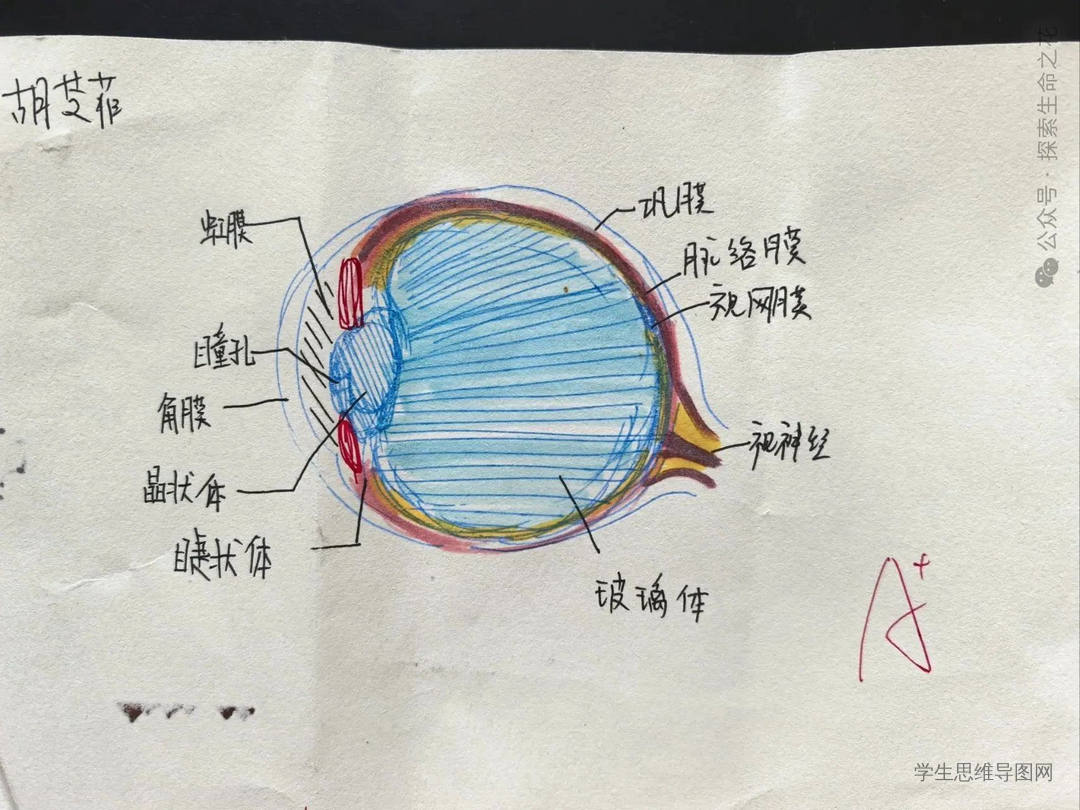 胡艾菲
虹膜
瞳孔
角膜
晶状体
睫状体
巩膜
脉络膜
视网膜
视神经
玻璃体
A+
公众号·探索生命之花
学生思维导图网